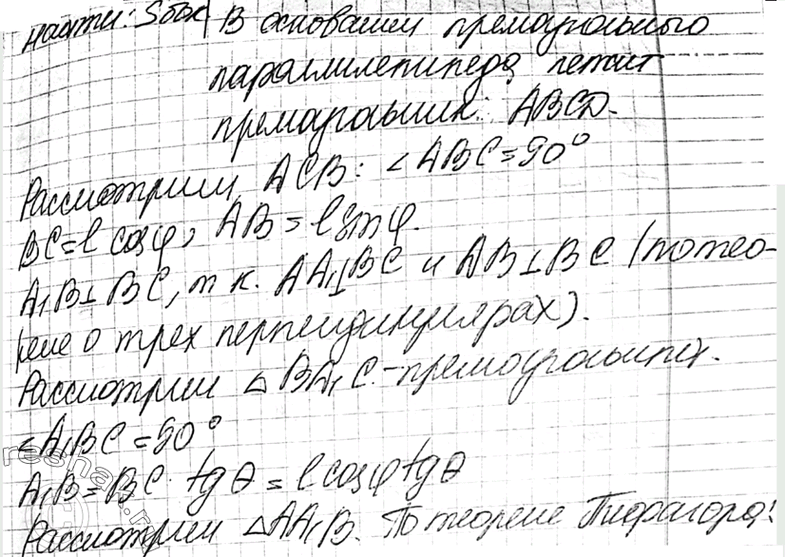 Найти: Sбок | В основании прямоугольного
параллелепипеда лежит
прямоугольник: ABCD.
Рассмотрим ACB: ∠ABC=90°
BC=l cosφ, AB=l sinφ.
A₁B⊥BC, т.к. AA₁⊥BC и AB⊥BC (по тео-
реме о трех перпендикулярах).
Рассмотрим △BA₁C - прямоугольный.
∠A₁BC=90°
A₁B=BC·tgθ=l cosφ tgθ
Рассмотрим △AA₁B. По теореме Пифагора: